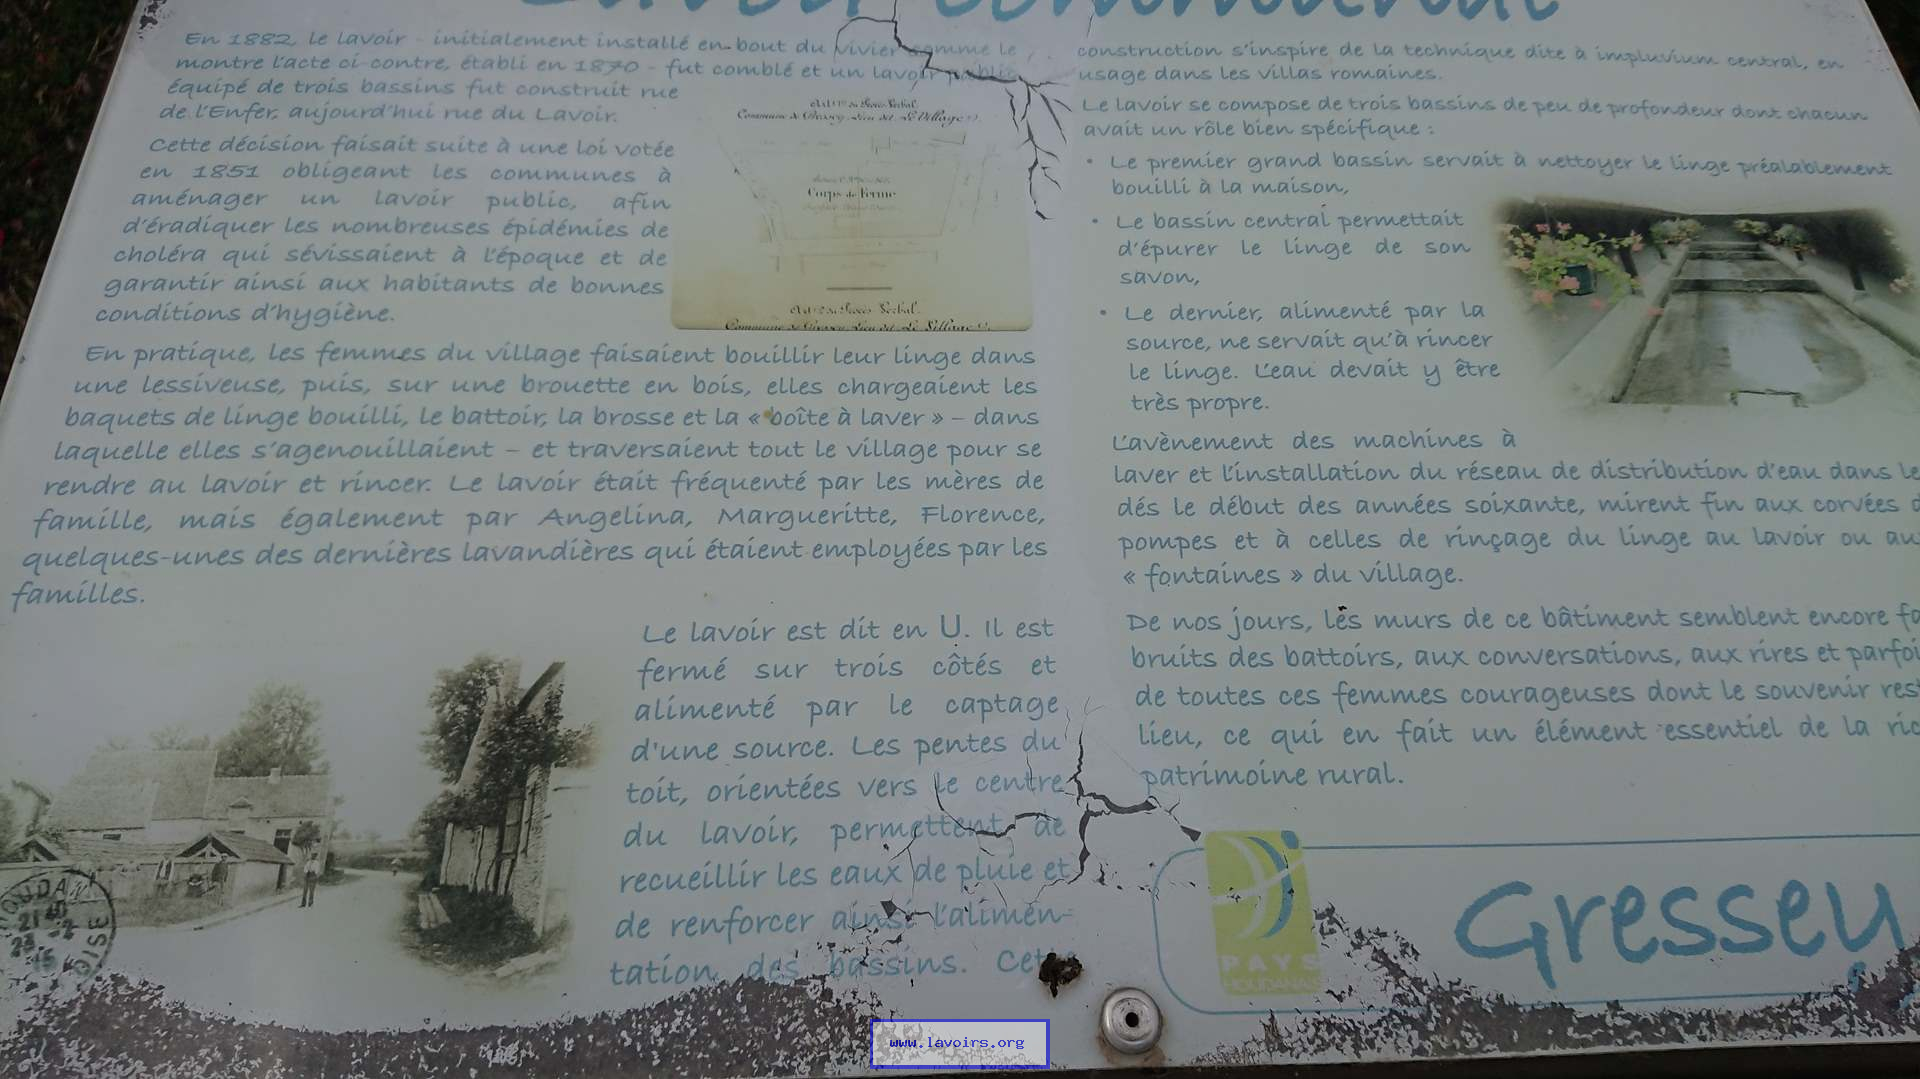 Lavoir communal
En 1882, le lavoir - initialement installé en bout du vivier comme le
montre l'acte ci-contre, établi en 1870 - fut comblé et un lavoir public
équipé de trois bassins fut construit rue
de l'Enfer, aujourd'hui rue du Lavoir.
Cette décision faisait suite à une loi votée
en 1851 obligeant les communes à
aménager un lavoir public, afin
d'éradiquer les nombreuses épidémies de
choléra qui sévissaient à l'époque et de
garantir ainsi aux habitants de bonnes
conditions d'hygiène.
Commune de Gressey Lieu dit Le Village
Corps de Ferme
En pratique, les femmes du village faisaient bouillir leur linge dans
une lessiveuse, puis, sur une brouette en bois, elles chargeaient les
baquets de linge bouilli, le battoir, la brosse et la « boîte à laver » – dans
laquelle elles s'agenouillaient – et traversaient tout le village pour se
rendre au lavoir et rincer. Le lavoir était fréquenté par les mères de
famille, mais également par Angelina, Margueritte, Florence,
quelques-unes des dernières lavandières qui étaient employées par les
familles.
Le lavoir est dit en U. Il est
fermé sur trois côtés et
alimenté par le captage
d'une source. Les pentes du
toit, orientées vers le centre
du lavoir, permettent de
recueillir les eaux de pluie et
de renforcer ainsi l'alimen-
tation des bassins. Cette
construction s'inspire de la technique dite à impluvium central, en
usage dans les villas romaines.
Le lavoir se compose de trois bassins de peu de profondeur dont chacun
avait un rôle bien spécifique :
• Le premier grand bassin servait à nettoyer le linge préalablement
bouilli à la maison,
• Le bassin central permettait
d'épurer le linge de son
savon,
• Le dernier, alimenté par la
source, ne servait qu'à rincer
le linge. L'eau devait y être
très propre.
L'avènement des machines à
laver et l'installation du réseau de distribution d'eau dans le
dés le début des années soixante, mirent fin aux corvées d
pompes et à celles de rinçage du linge au lavoir ou au
« fontaines » du village.
De nos jours, les murs de ce bâtiment semblent encore fa
bruits des battoirs, aux conversations, aux rires et parfoi
de toutes ces femmes courageuses dont le souvenir rest
lieu, ce qui en fait un élément essentiel de la ric
patrimoine rural.
PAYS
HOUDANAIS
Gressey
HOUDAN
OISE
www.lavoirs.org